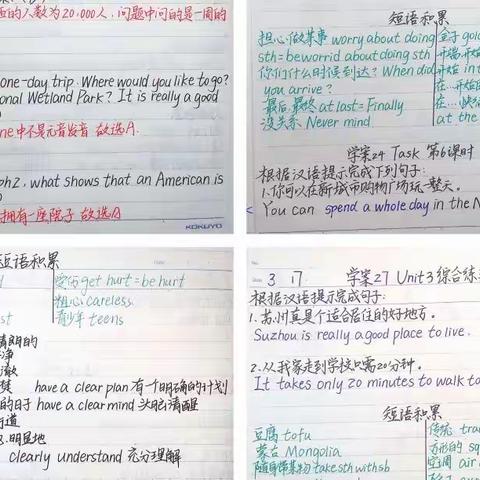 的人数为20,000人,问题中问的是一周的
one-day trip. Where would you like to go?
onal Wetland Park? It is really a good
one中不是元音发音 故选A.
ph2, what shows that an American is
拥有一座院子 故选A
KOKUYO
短语积累
担心做某事 worry about doing
sth = be worrid about doing sth
你们什么时候到达? When did
you arrive?
最后,最终 at last = Finally
没关系 Never mind
金子 gol
开始 in t
at the
学案24 Task 第6课时
根据汉语提示完成下列句子:
1.你可以在新城市购物广场玩一整天。
You can spend a whole day in the N
短语积累
受伤 get hurt = be hurt
粗心 careless
青少年 teens
st
have a clear plan 有一个明确的计划
的日子 have a clear mind 头脑清醒
街道
3.明显地
clearly understand 充分理解
3 17 学案27 Unit 3 综合练
根据汉语提示完成句子:
1.苏州真是个适合居住的好地方。
Suzhou is really a good place to live.
2.从我家走到学校只需20分钟。
It takes only 20 minutes to walk to
短语积累
豆腐 tofu
蒙古 Mongolia
随身带某物 take sth with sb
传统 tra
方形的 sq
空调 air